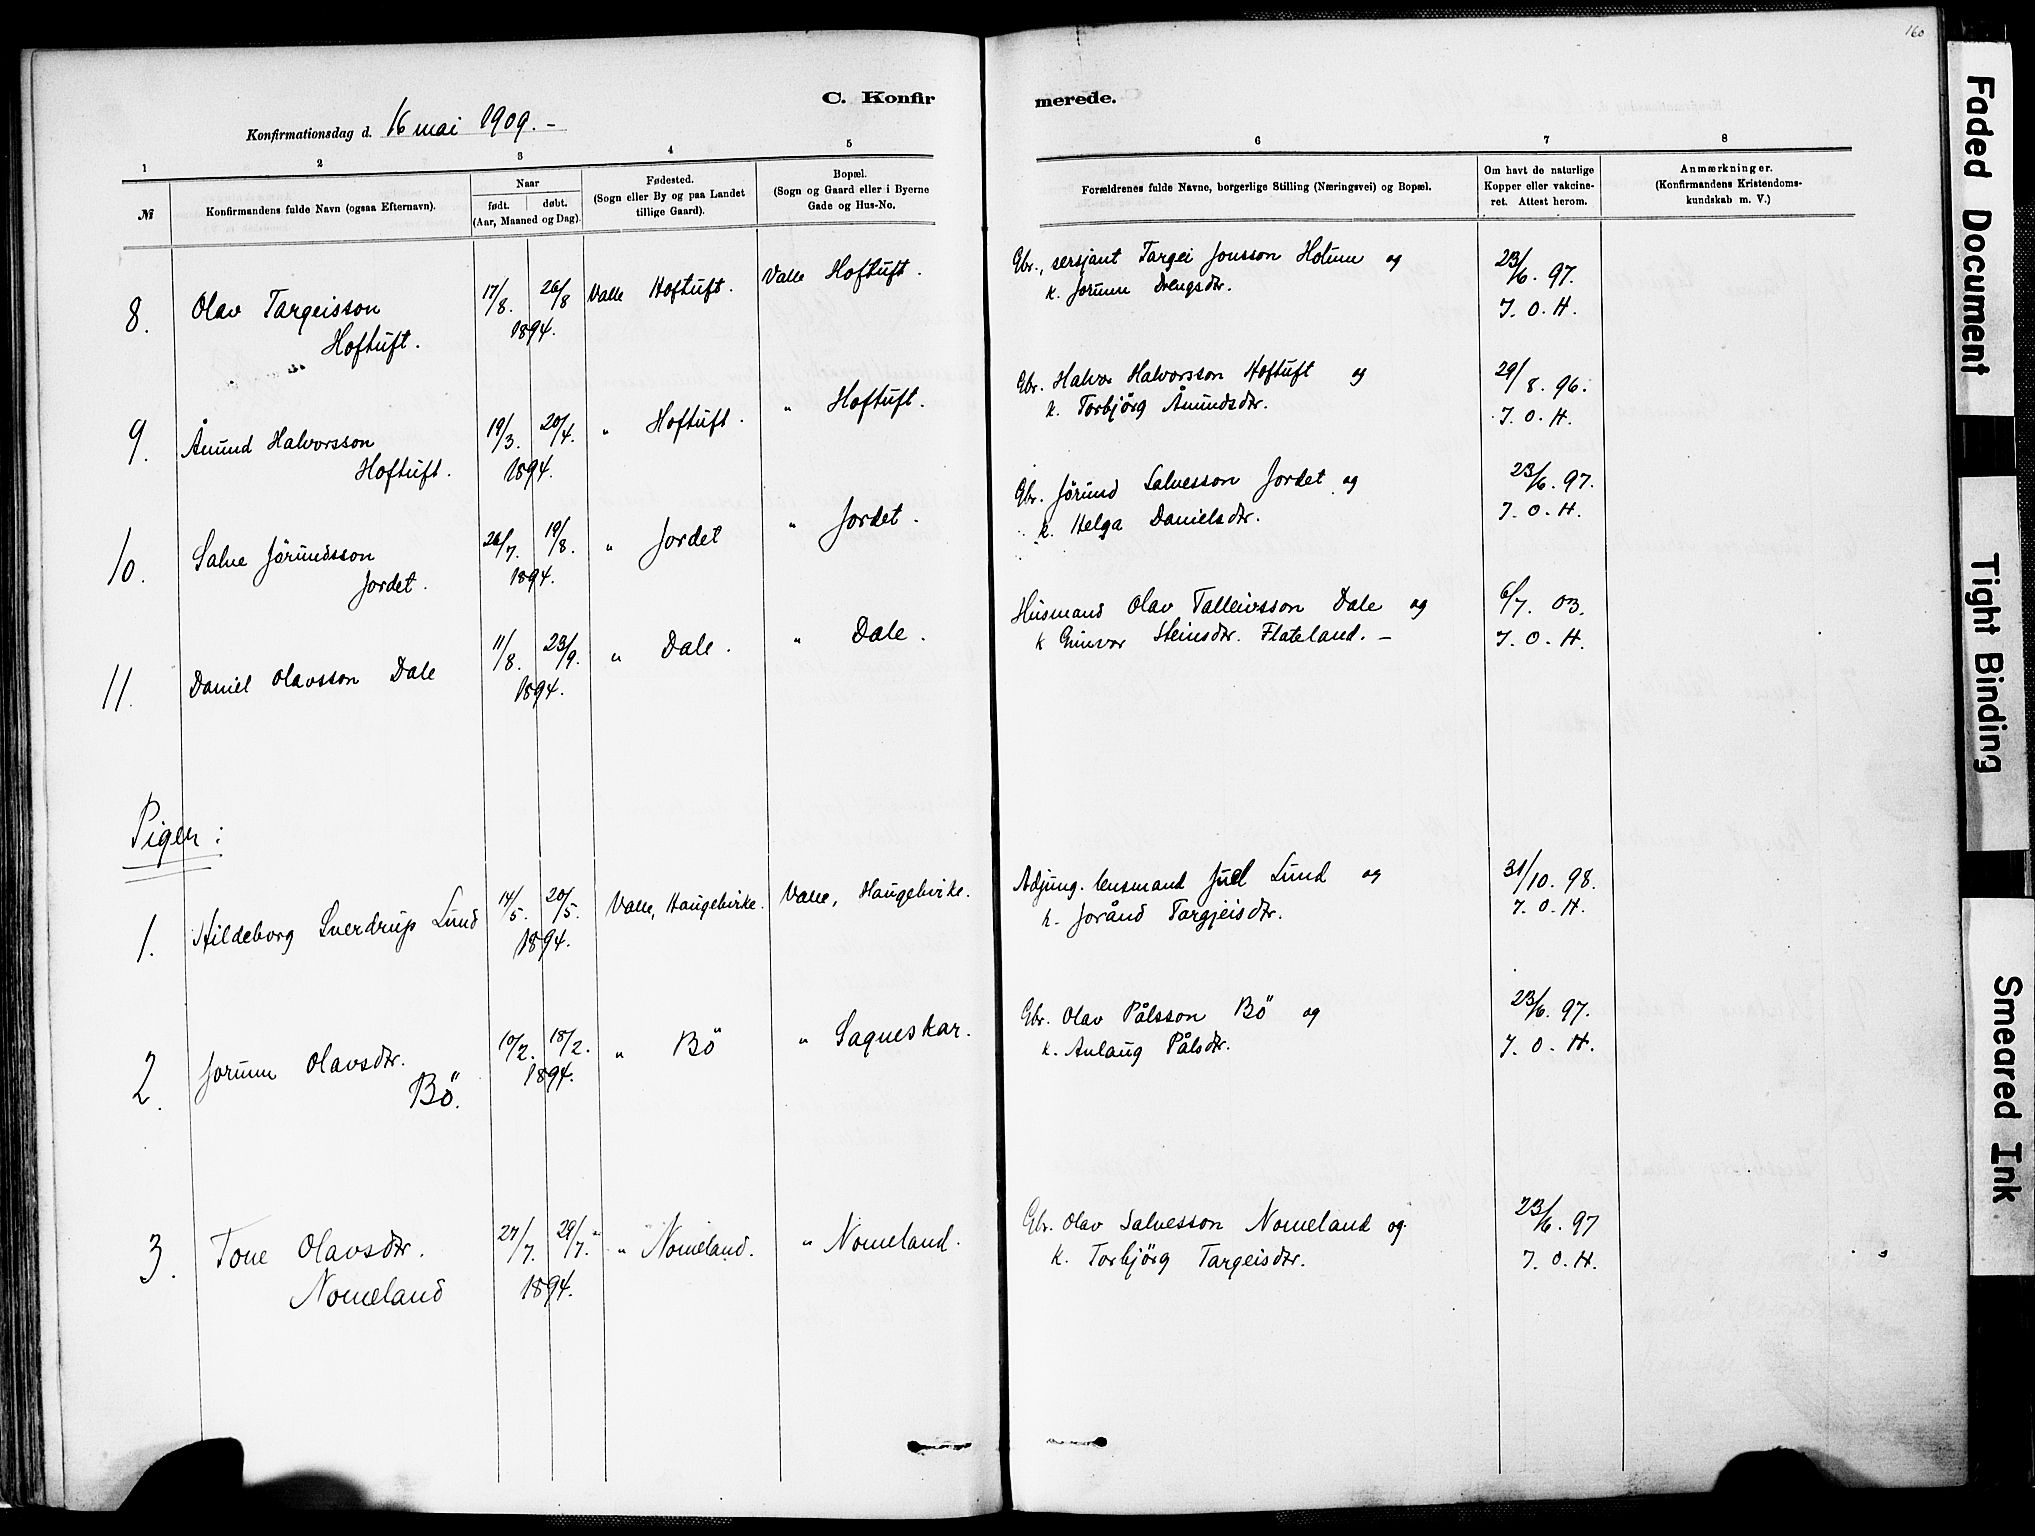 160
C. Konfirmerede.
Konfirmationsdag d. 16 mai 1909. –
1 2 3 4 5 6 7 8
№
Konfirmandens fulde Navn (ogsaa Efternavn).
Naar
født. døbt.
(Aar, Maaned og Dag).
Fødested.
(Sogn eller By og paa Landet
tillige Gaard).
Bopæl.
(Sogn og Gaard eller i Byerne
Gade og Hus-No.
Forældrenes fulde Navne, borgerlige Stilling (Næringsvei) og Bopæl.
Om havt de naturlige
Kopper eller vakcine-
ret. Attest herom.
Anmærkninger.
(Konfirmandens Kristendoms-
kundskab m. V.)
8. Olav Targeisson 17/8. 26/8 Valle Hoftuft. Valle Hoftuft. Gbr., sersjant Targei Jonsson Holum og 23/6. 97.
Hoftuft. 1894. k. Jorunn Drengsdtr. J. O. H.
9. Ånund Halvorsson 19/3. 20/4. " Hoftuft. " Hoftuft. Gbr. Halvor Halvorsson Hoftuft og 29/8. 96.
Hoftuft. 1894. k. Torbjörg Ånundsdtr. J. O. H.
10. Salve Jörundsson 26/7. 19/8. " Jordet " Jordet. Gbr. Jörund Salvesson Jordet og 23/6. 97.
Jordet. 1894. k. Helga Danielsdtr. J. O. H.
11. Daniel Olavsson Dale 11/8. 23/9. " Dale. " Dale. Husmand Olav Talleivsson Dale og 6/7. 03.
1894. k Gunvor Steinsdtr. Flateland. – J. O. H.
Piger:
1. Hildeborg Sverdrup Lund 14/5. 20/5. Valle, Haugebirke. Valle, Haugebirke. Adjung. lensmand Juel Lund og 31/10. 98.
1894. k. Jorånd Targjeisdtr. J. O. H.
2. Jorunn Olavsdtr. 10/2. 18/2. " Bö " Sagneskar. Gbr. Olav Pålsson Bö og 23/6. 97.
Bö. 1894. k. Anlaug Pålsdtr. J. O. H.
3. Tone Olavsdtr. 27/7. 29/7. " Nomeland. " Nomeland. Gbr. Olav Salvesson Nomeland og 23/6. 97
Nomeland 1894. k. Torbjörg Targeisdtr. J. O. H.
Faded Document
Tight Binding
Smeared Ink